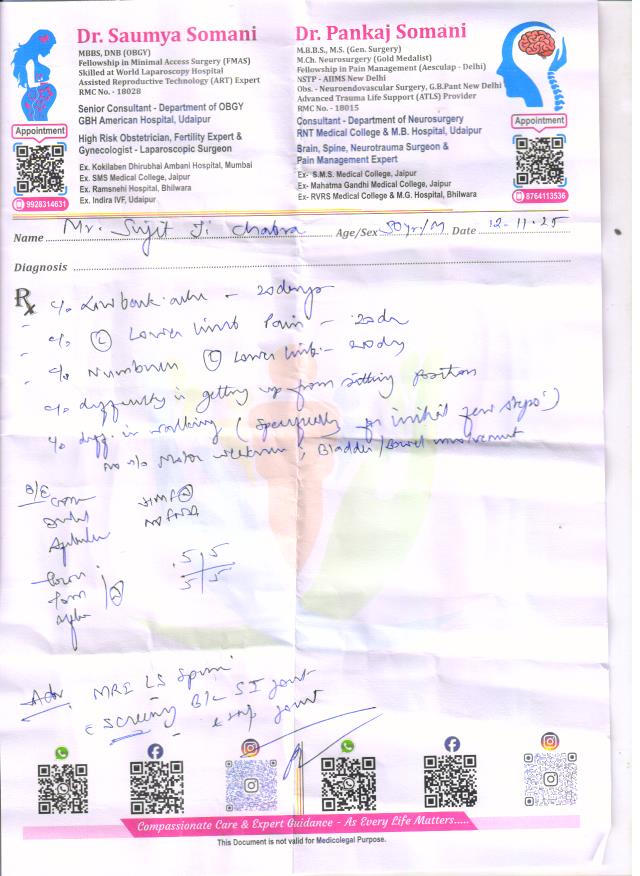 Dr. Saumya Somani
MBBS, DNB (OBGY)
Fellowship in Minimal Access Surgery (FMAS)
Skilled at World Laparoscopy Hospital
Assisted Reproductive Technology (ART) Expert
RMC No. - 18028
Senior Consultant - Department of OBGY
GBH American Hospital, Udaipur
High Risk Obstetrician, Fertility Expert &
Gynecologist - Laparoscopic Surgeon
Ex. Kokilaben Dhirubhai Ambani Hospital, Mumbai
Ex. SMS Medical College, Jaipur
Ex. Ramsnehi Hospital, Bhilwara
Ex. Indira IVF, Udaipur
Appointment
9928314631
Dr. Pankaj Somani
M.B.B.S., M.S. (Gen. Surgery)
M.Ch. Neurosurgery (Gold Medalist)
Fellowship in Pain Management (Aesculap - Delhi)
NSTP - AIIMS New Delhi
Obs. - Neuroendovascular Surgery, G.B.Pant New Delhi
Advanced Trauma Life Support (ATLS) Provider
RMC No. - 18015
Consultant - Department of Neurosurgery
RNT Medical College & M.B. Hospital, Udaipur
Brain, Spine, Neurotrauma Surgeon &
Pain Management Expert
Ex- S.M.S. Medical College, Jaipur
Ex- Mahatma Gandhi Medical College, Jaipur
Ex- RVRS Medical College & M.G. Hospital, Bhilwara
Appointment
8764113536
Name Mr. Sujit Ji Chabra Age/Sex 50yr/M Date 12-11-25
Diagnosis
Rx c/o Low back ache - 20 days
- c/o (L) Lower limb Pain - 20 da
- c/o Numbness (L) Lower limb - 20 day
c/o difficulty in getting up from sitting position
c/o diff. in walking (specifically for initial few steps)
no h/o Motor weakness, Bladder/Bowel involvement
O/E
5 | 5
5 | 5
Adv MRI LS Spine
c screening B/L SI Joint
& Hip Joint
Compassionate Care & Expert Guidance - As Every Life Matters.....
This Document is not valid for Medicolegal Purpose.